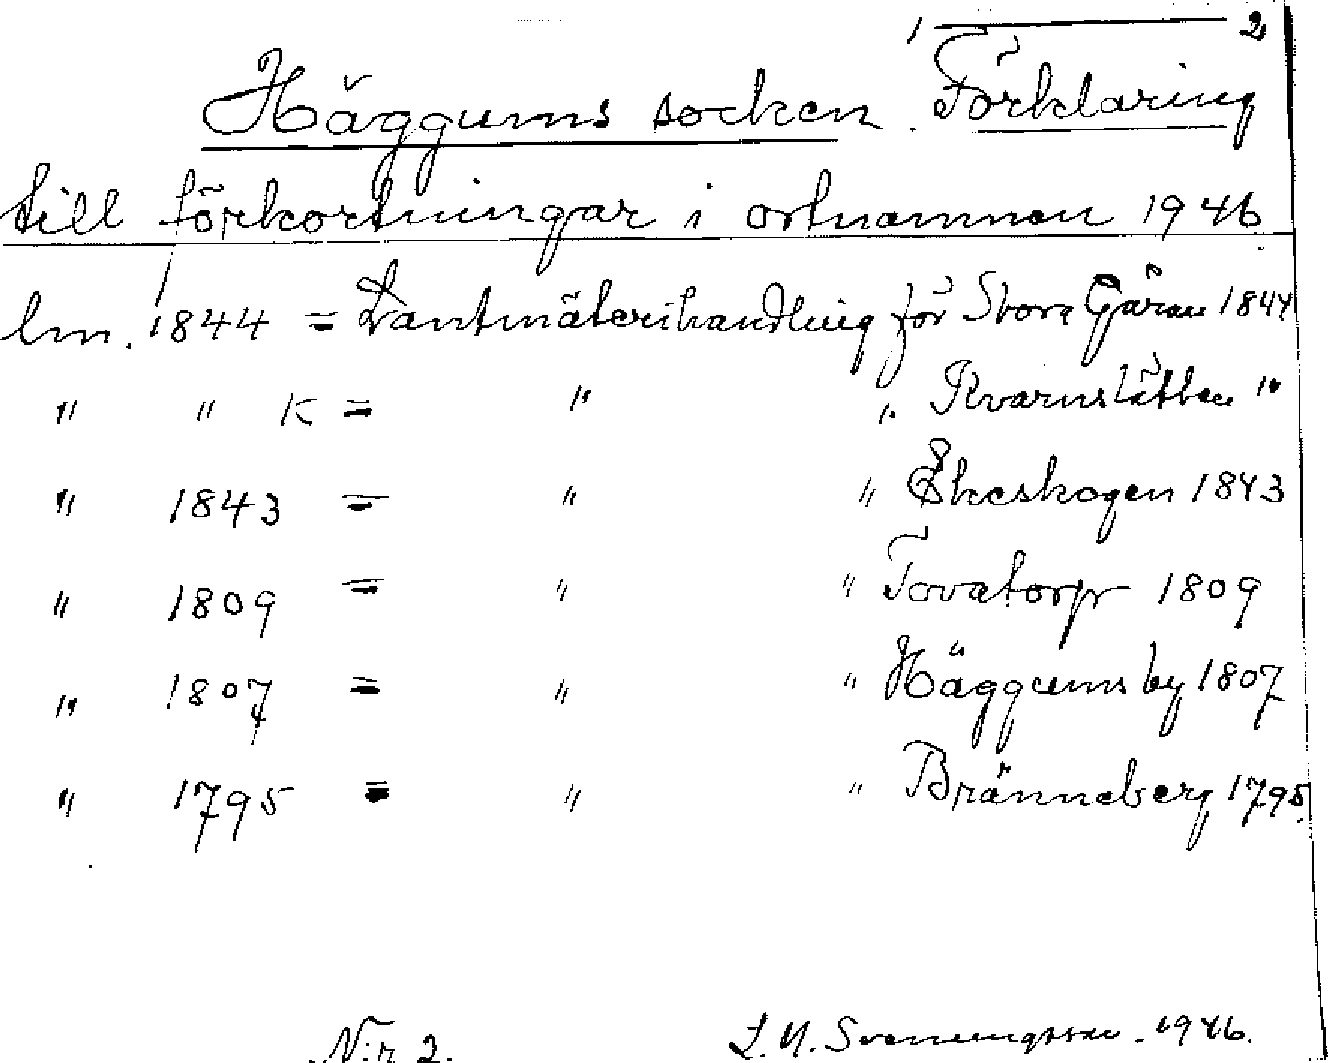 1 — 2
Häggums socken. Förklaring
till förkortningar i ortnamnen 1946
lm. 1844 = Lantmäterihandling för Stora Gäran 1844
" " K = " " Kvarnslätten "
" 1843 = " " Ekeskogen 1843
" 1809 = " " Tovatorp 1809
" 1807 = " " Häggums by 1807
" 1795 = " " Bränneberg 1795.
N:r 2. Svenningsson. 1946.